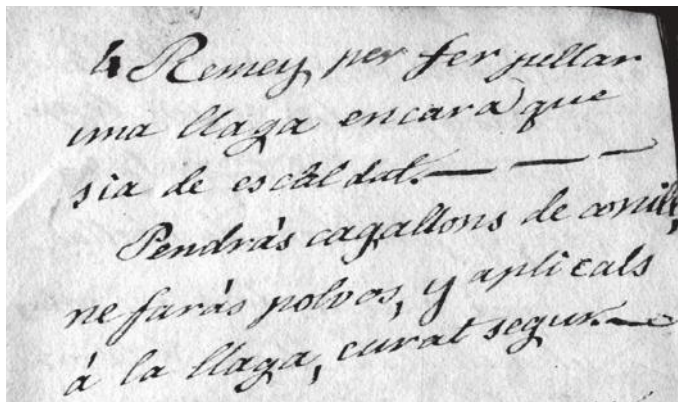 4 Remey per fer pellar
una llaga encara que
sia de escaldat. — — —
Pendrás cagallons de conill,
ne farás polvos, y aplicals
á la llaga, curat segur. —